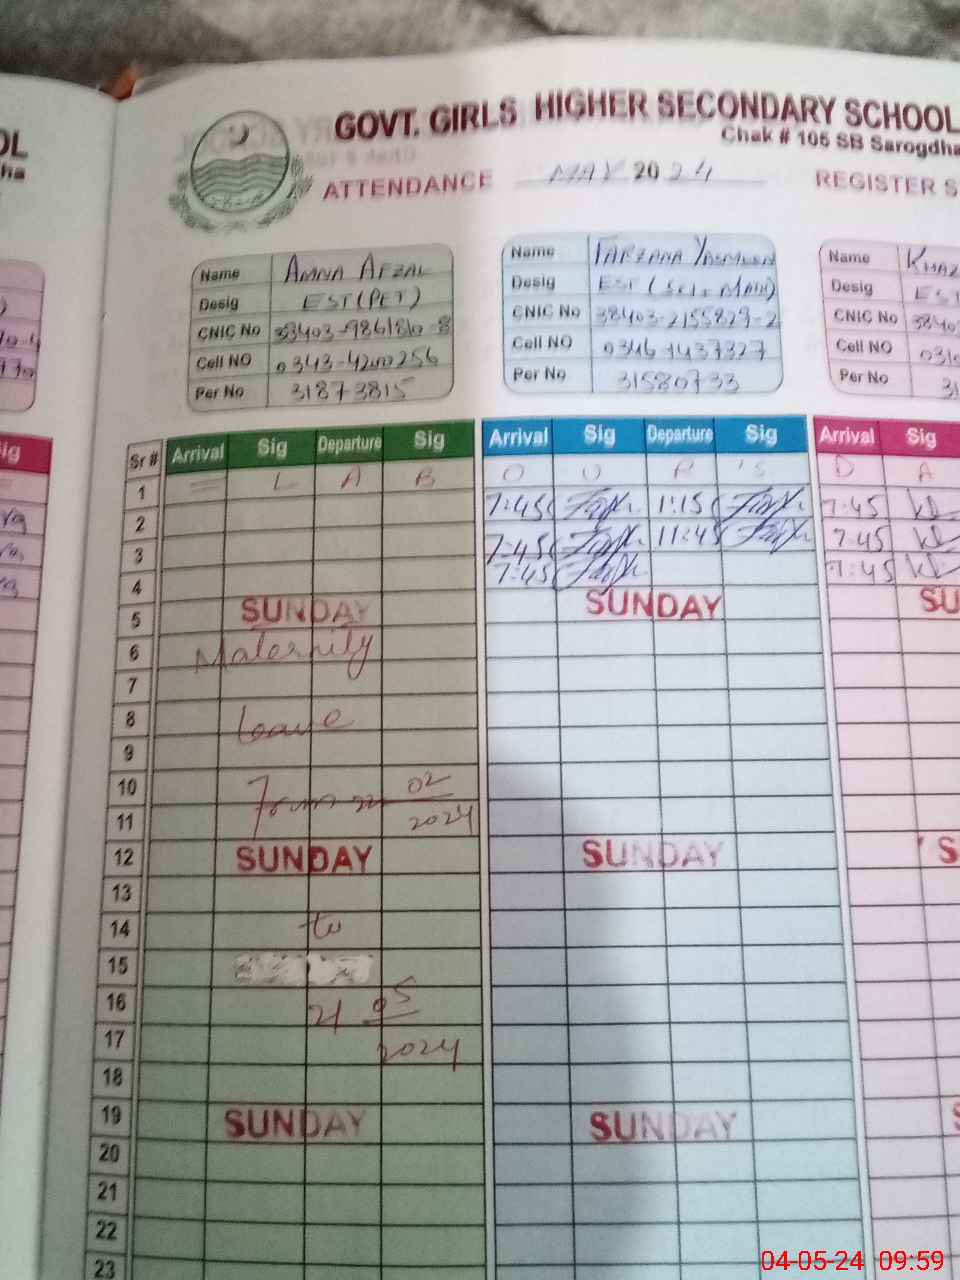 GOVT. GIRLS HIGHER SECONDARY SCHOOL
Chak # 105 SB Sarogdha
ATTENDANCE MAY 2024 REGISTER S
Name AMNA AFZAL
Desig EST (PET)
CNIC No
Cell NO 0343-4200256
Per No 31873815
Name FARZANA YASMEEN
Desig EST (Sci + Math)
CNIC No 38403-2155829-2
Cell NO 0346 7437327
Per No 31580733
Name
Desig EST
CNIC No
Cell NO
Per No 31
Sr # Arrival Sig Departure Sig Arrival Sig Departure Sig Arrival Sig
L A B O U R 'S D A
1 7:45 1:15 7:45
2 7:45 11:45 7:45
3 7:45 7:45
4
5 SUNDAY SUNDAY SU
6 Maternity
7
8 leave
9
10 From 02
11 2024
12 SUNDAY SUNDAY S
13
14 to
15
16 21 05
17 2024
18
19 SUNDAY SUNDAY S
20
21
22
23
04-05-24 09:59